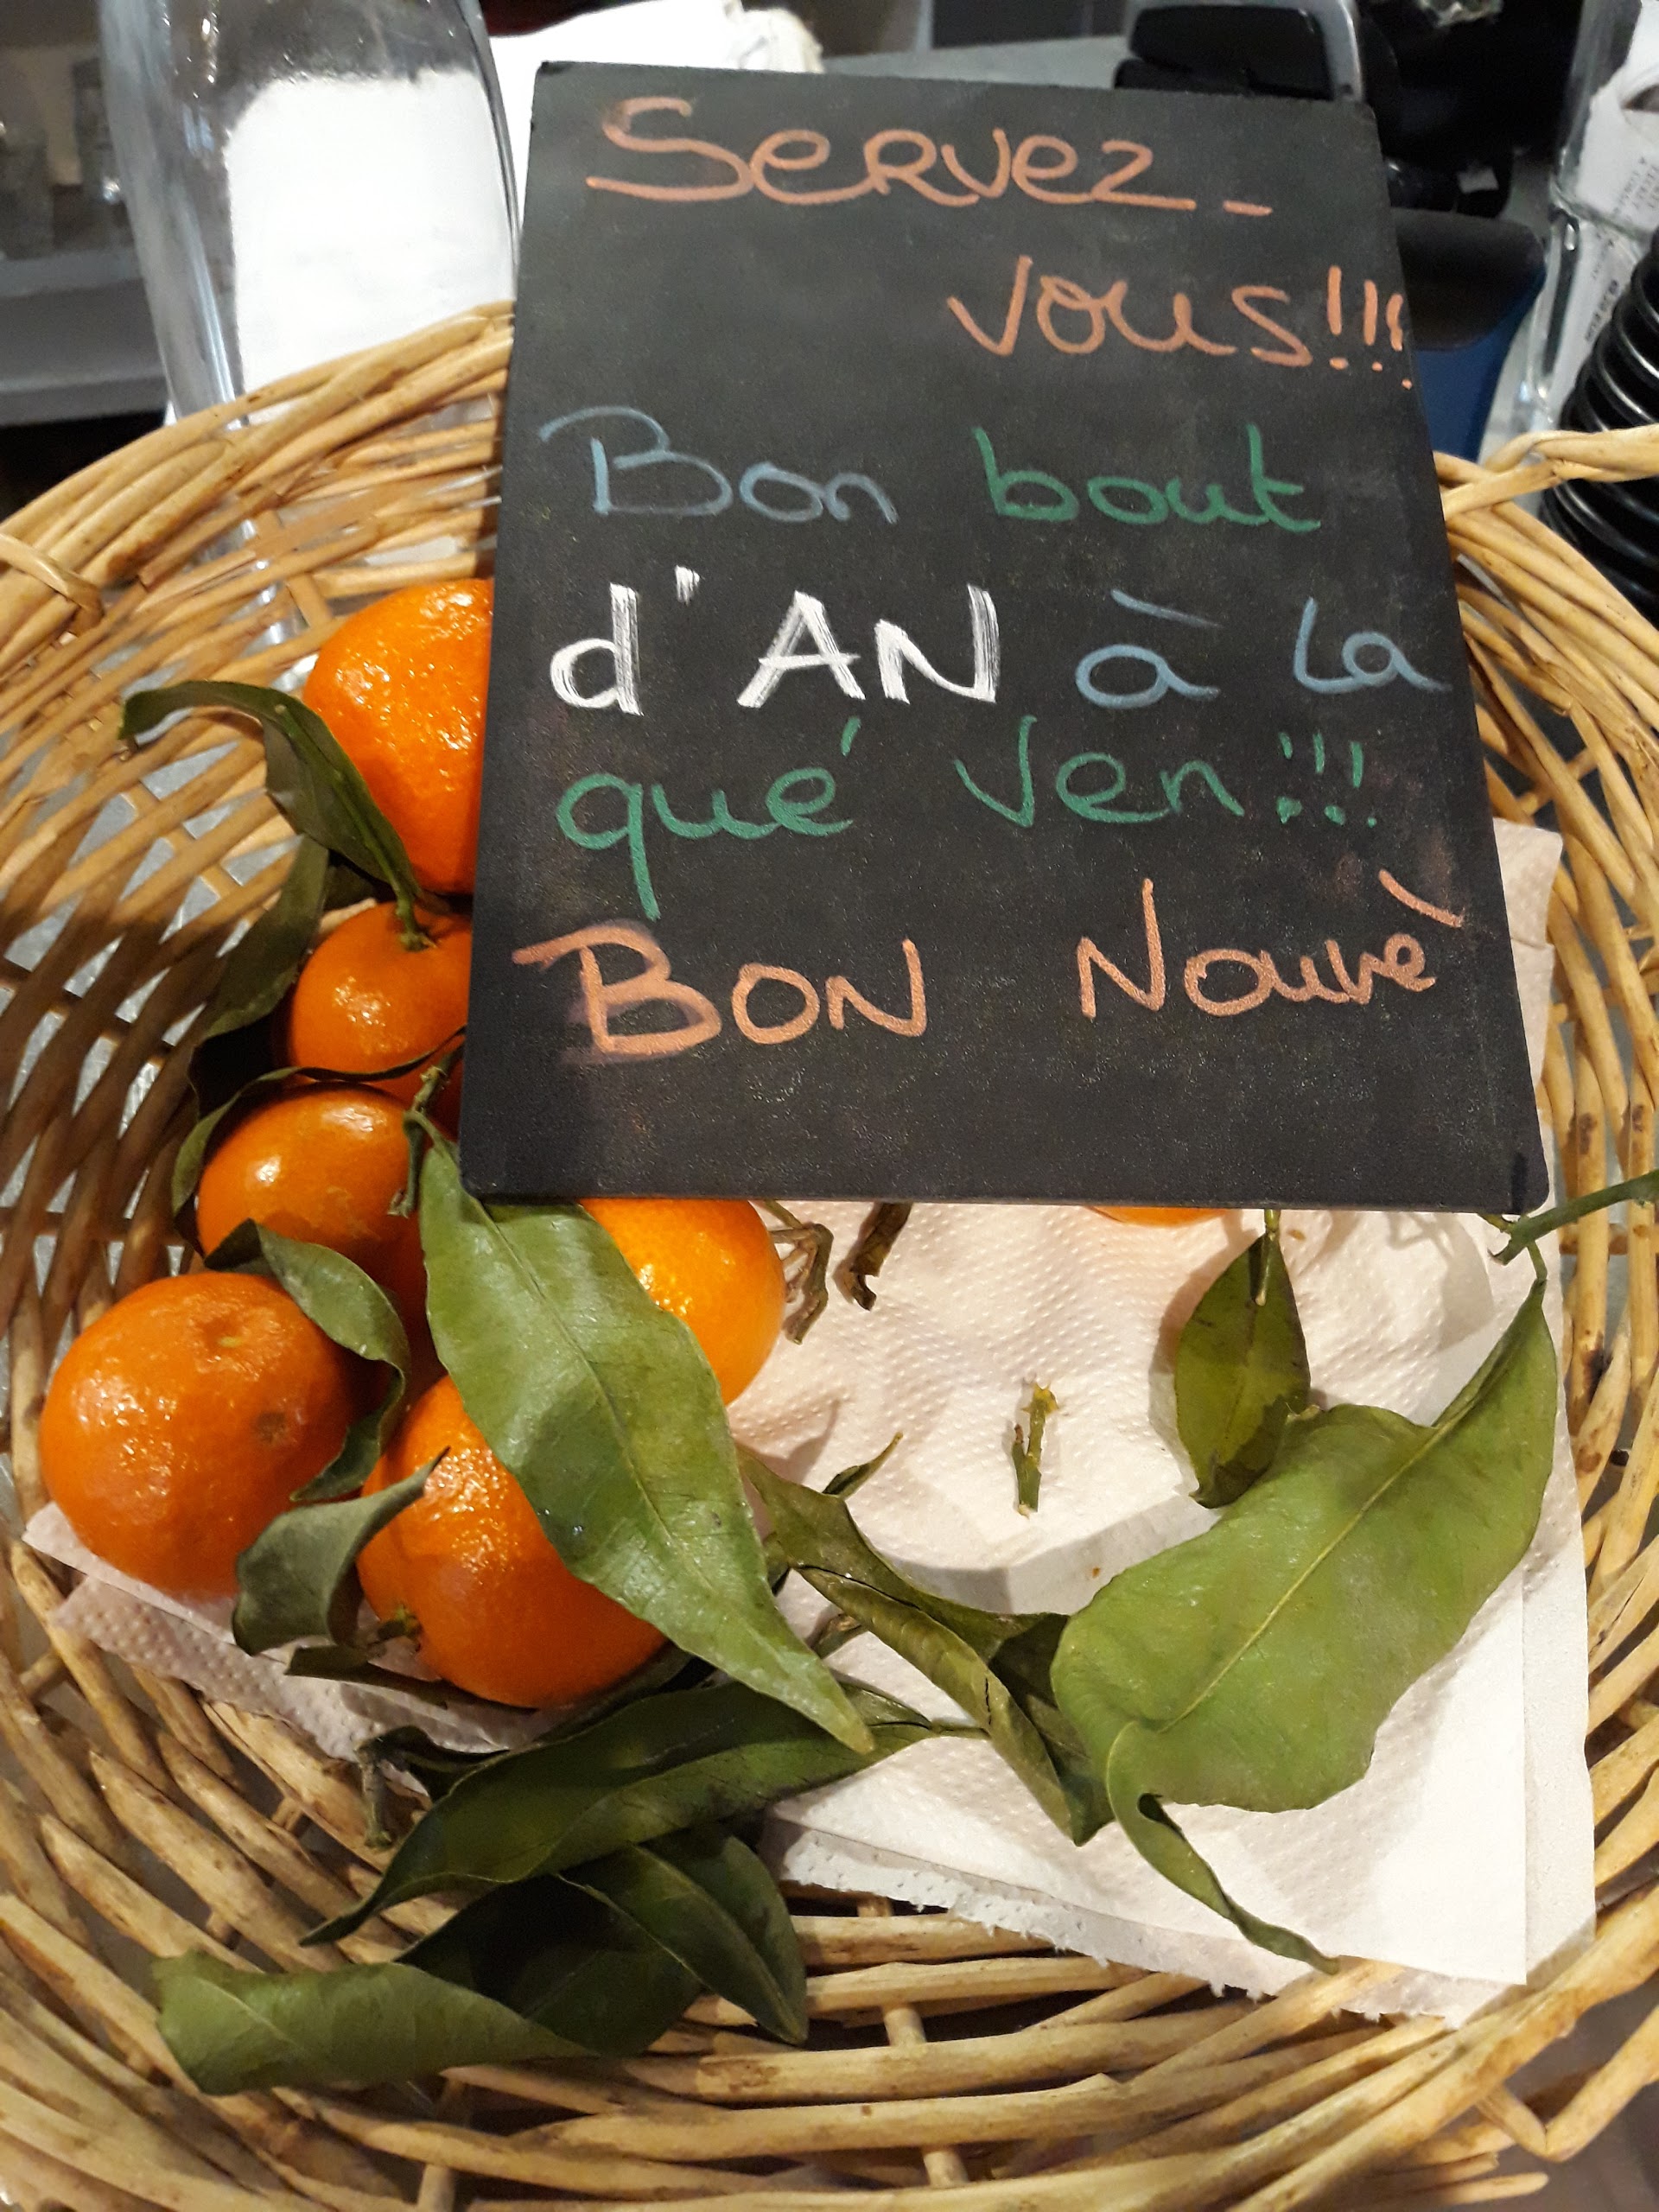 Servez-
vous!!!
Bon bout
d'AN à la
qué ven!!!
BON Nouvè